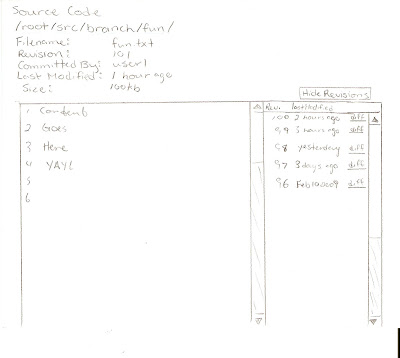 Source Code
/root/src/branch/fun/
Filename: fun.txt
Revision: 101
Committed By: user1
Last Modified: 1 hour ago
Size: 100kb
Hide Revisions
1 Content
2 Goes
3 Here
4 YAY!
5
6
Rev. last Modified
100 2 hours ago diff
99 3 hours ago diff
98 yesterday diff
97 3 days ago diff
96 Feb 19 2009 diff